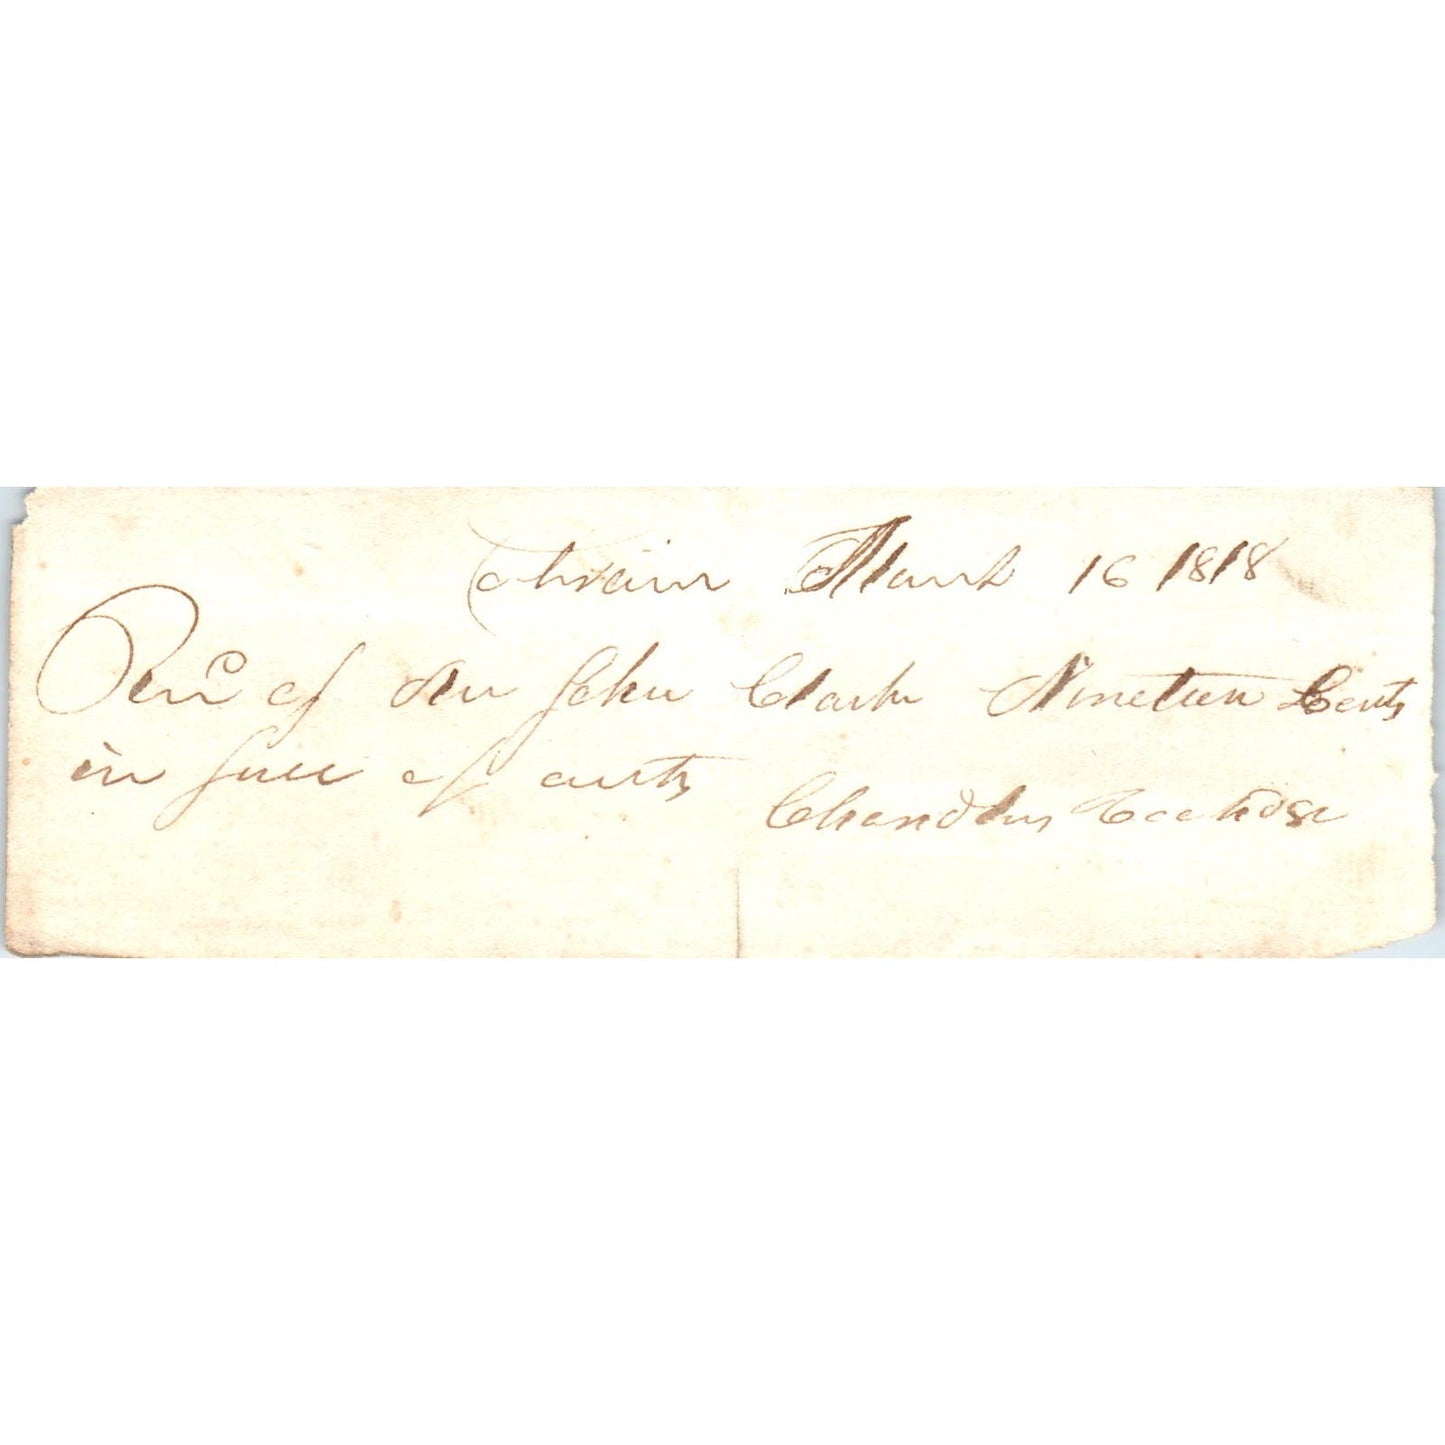 March 16 1818
Recd of Mr John Clark Nineteen Cents
in full of accts
Chandler